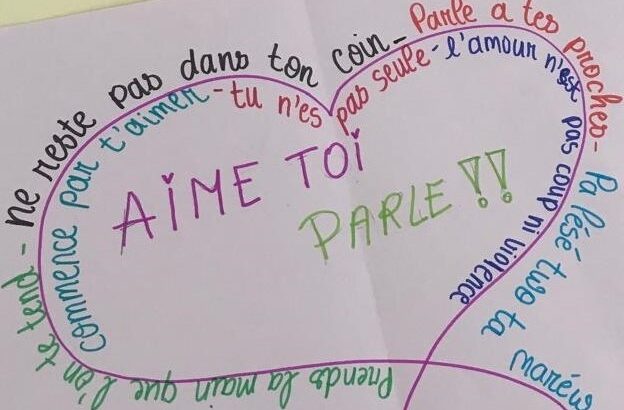 Prends la main que l'on te tend -
ne reste pas dans ton coin -
Parle a tes proches -
Pa lésé two ta
maréw
Commence par t'aimer -
tu n'es pas seule -
l'amour n'est pas coup ni violence
AIME TOI
PARLE !!